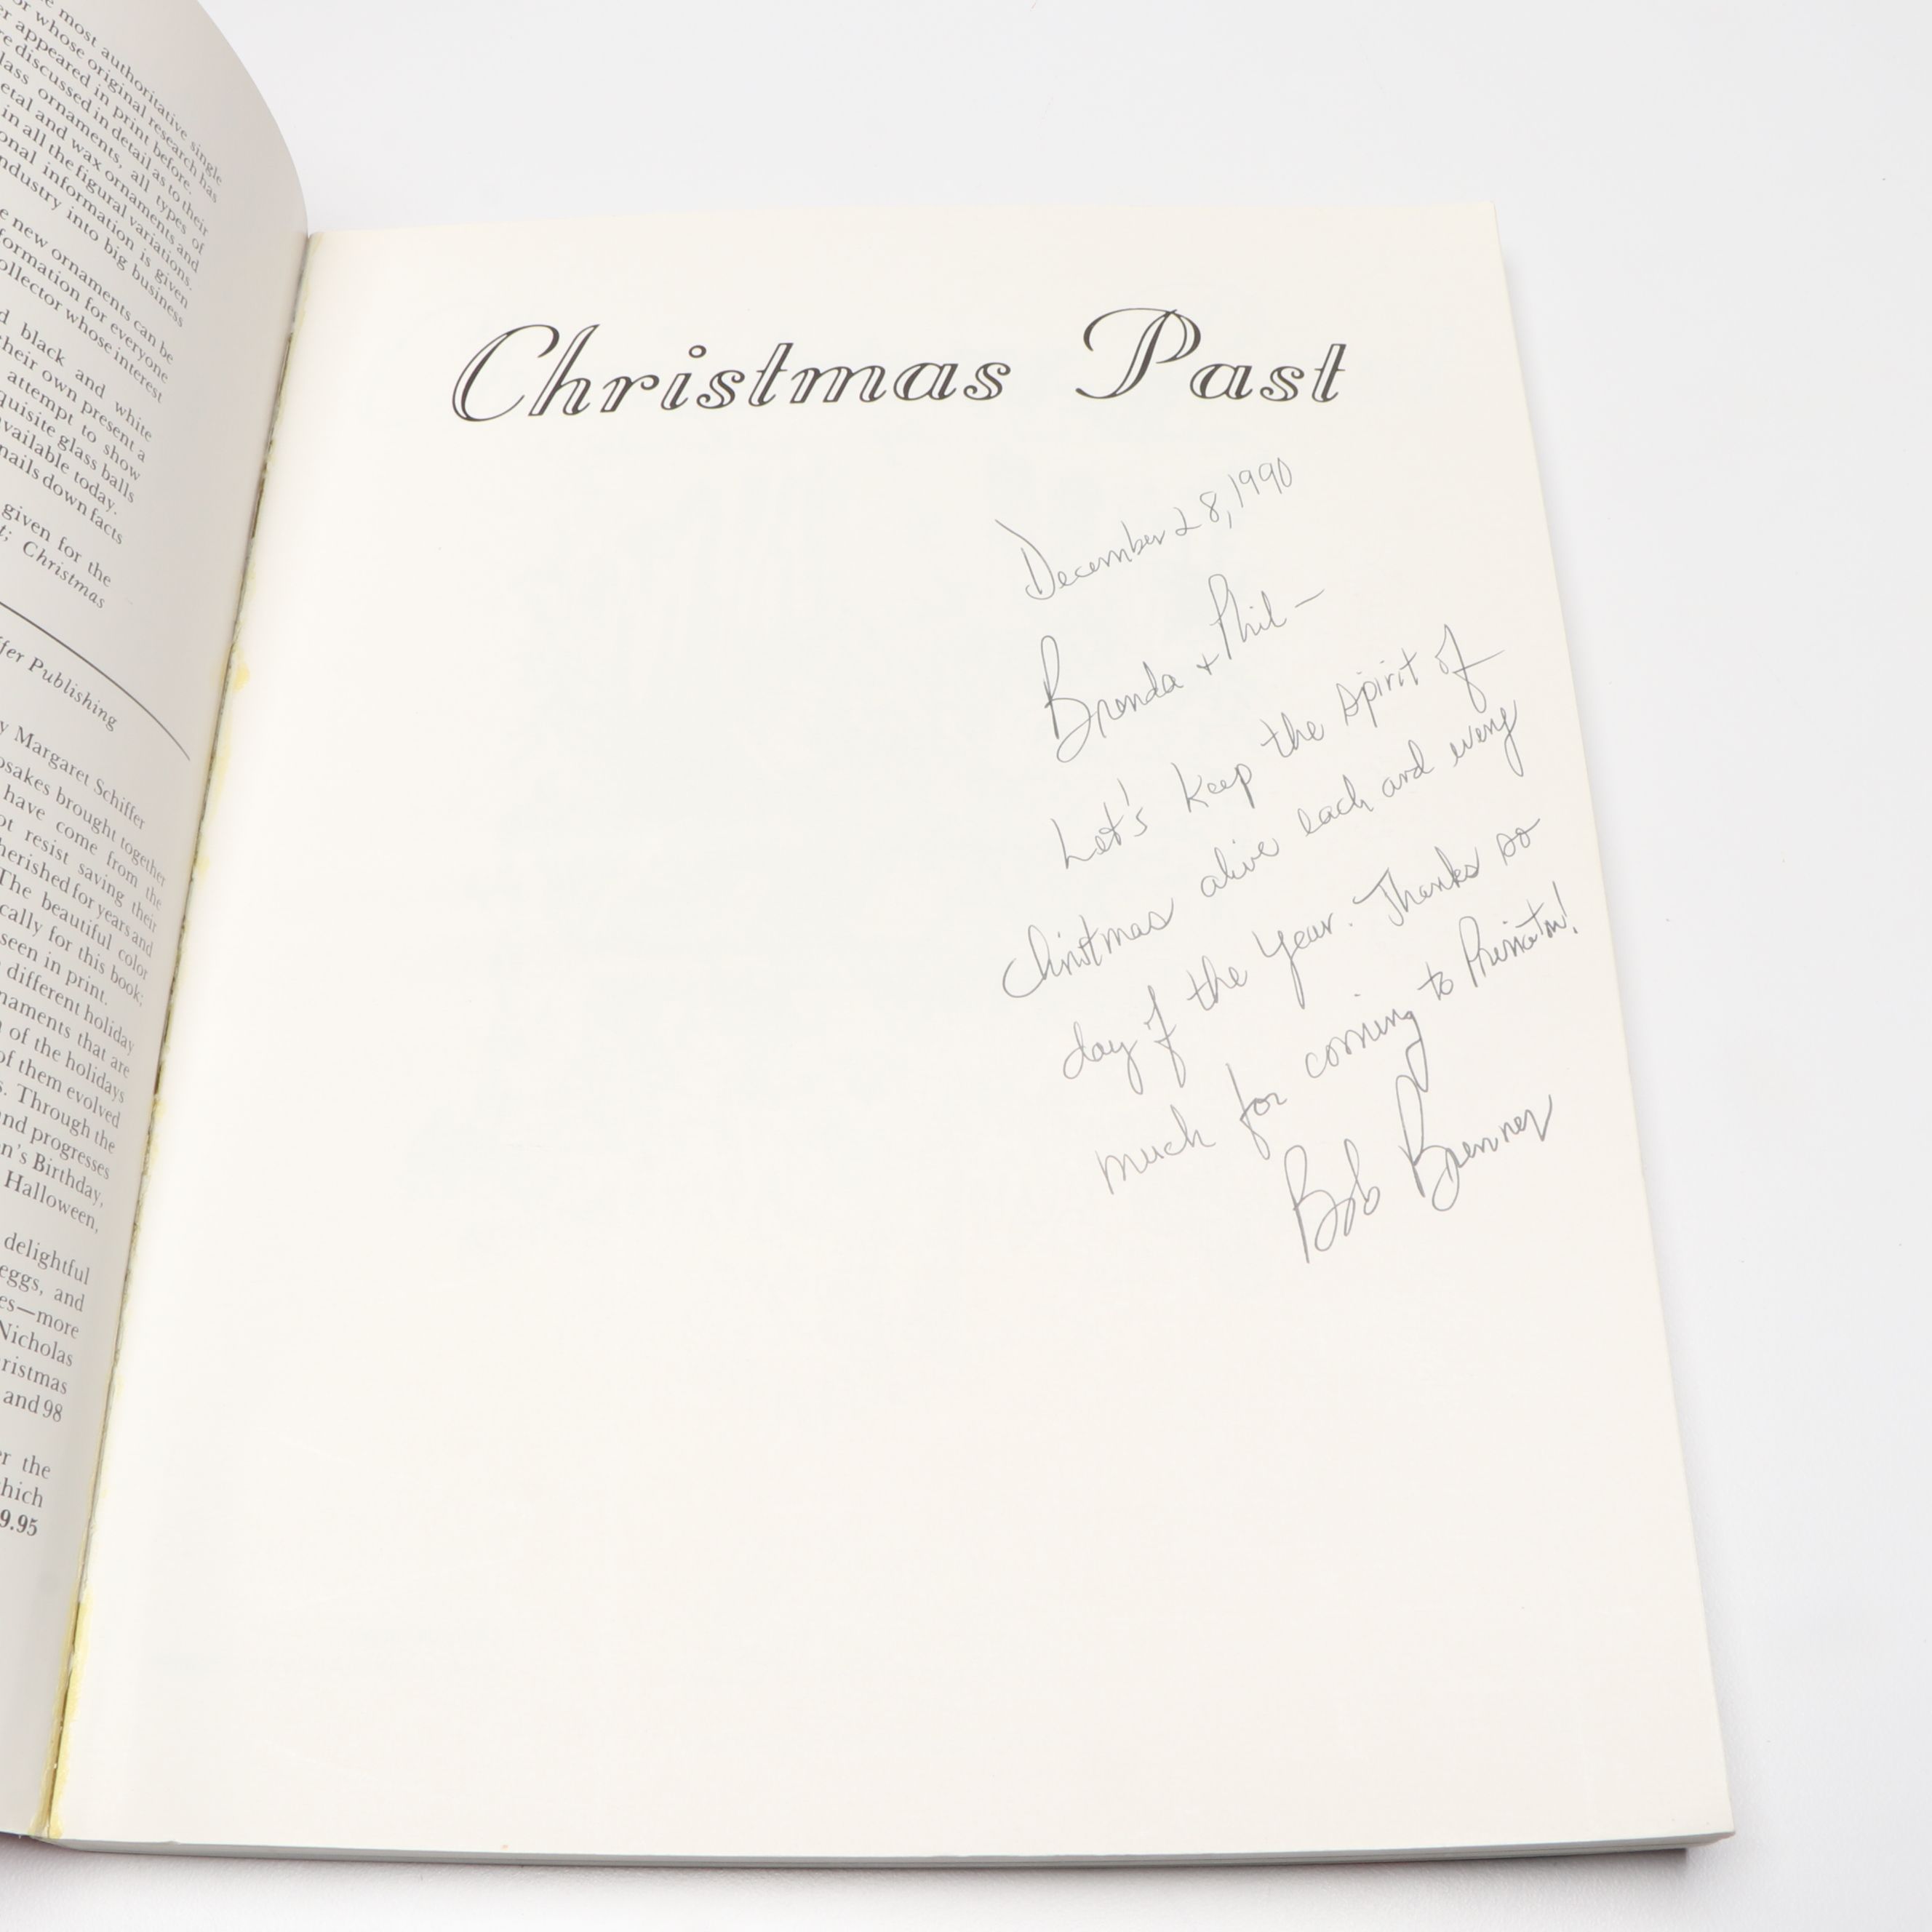 e most authoritative single
or whose original research has
er appeared in print before.
re discussed in detail as to their
lass ornaments, all types of
etal and wax ornaments and
in all the figural variations.
onal information is given
ndustry into big business
e new ornaments can be
formation for everyone
ollector whose interest
d black and white
their own present a
attempt to show
quisite glass balls
vailable today.
nails down facts
given for the
t; Christmas
ffer Publishing
y Margaret Schiffer
psakes brought together
have come from the
ot resist saving their
herished for years and
The beautiful color
cally for this book;
seen in print.
different holiday
naments that are
n of the holidays
of them evolved
s. Through the
nd progresses
n's Birthday,
Halloween,
delightful
eggs, and
es—more
Nicholas
ristmas
and 98
er the
hich
9.95
Christmas Past
December 28, 1990
Brenda + Phil —
Let's keep the spirit of
Christmas alive each and every
day of the year. Thanks so
much for coming to Princeton!
Bob Brenner